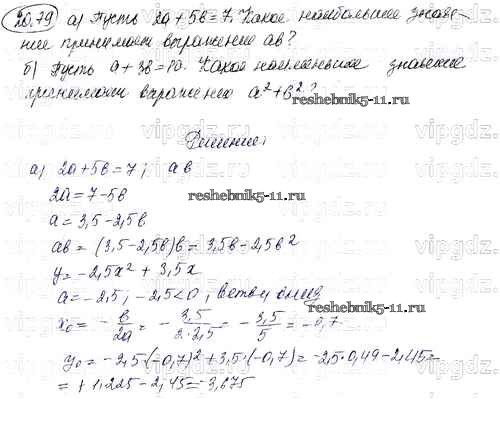 20.79 а) Пусть 2a + 5b = 7. Какое наибольшее значе-
ние принимает выражение ab?
б) Пусть a + 3b = 10. Какое наименьшее значение
принимает выражение a² + b²?
reshebnik5-11.ru
Решение:
а) 2a + 5b = 7; ab
2a = 7 - 5b
reshebnik5-11.ru
a = 3,5 - 2,5b
ab = (3,5 - 2,5b)b = 3,5b - 2,5b²
y = -2,5x² + 3,5x
a = -2,5; -2,5 < 0, ветви вниз
x₀ = - b/2a = - 3,5/2·2,5 = - 3,5/5 = -0,7
y₀ = -2,5·(-0,7)² + 3,5·(-0,7) = -2,5·0,49 - 2,45 =
= + 1,225 - 2,45 = -3,675
reshebnik5-11.ru